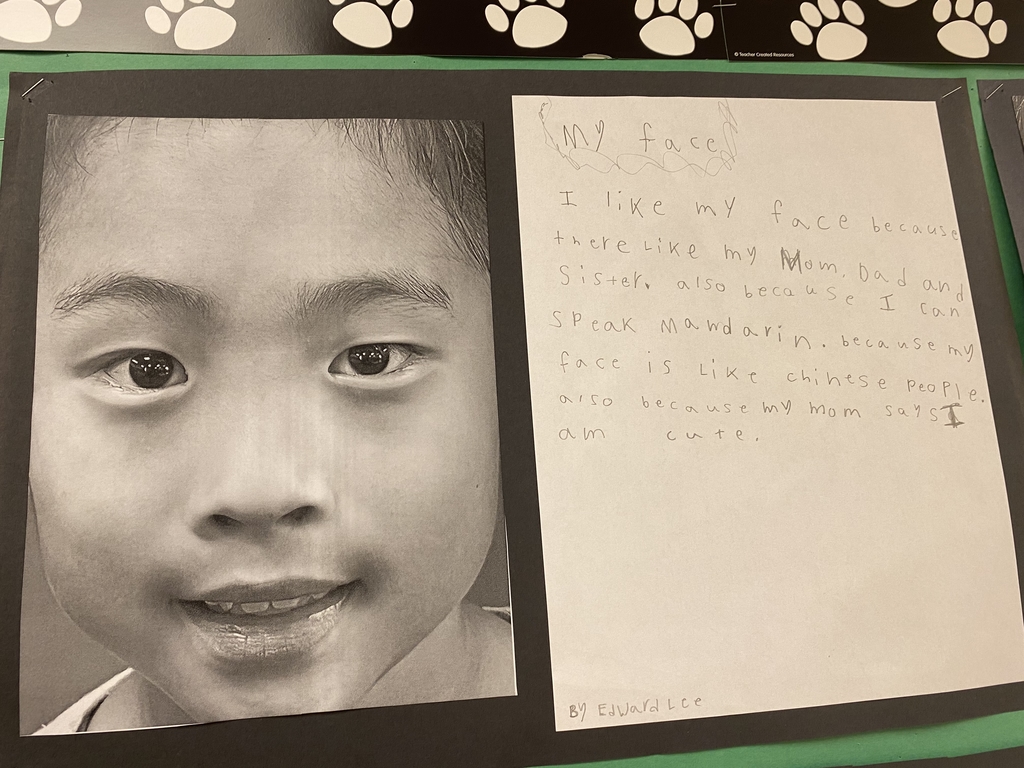 © Teacher Created Resources
My face
I like my face because
there like my Mom. Dad and
Sister. also because I can
speak Mandarin. because my
face is like chinese people.
also because my mom says I
am cute.
By Edward Lee